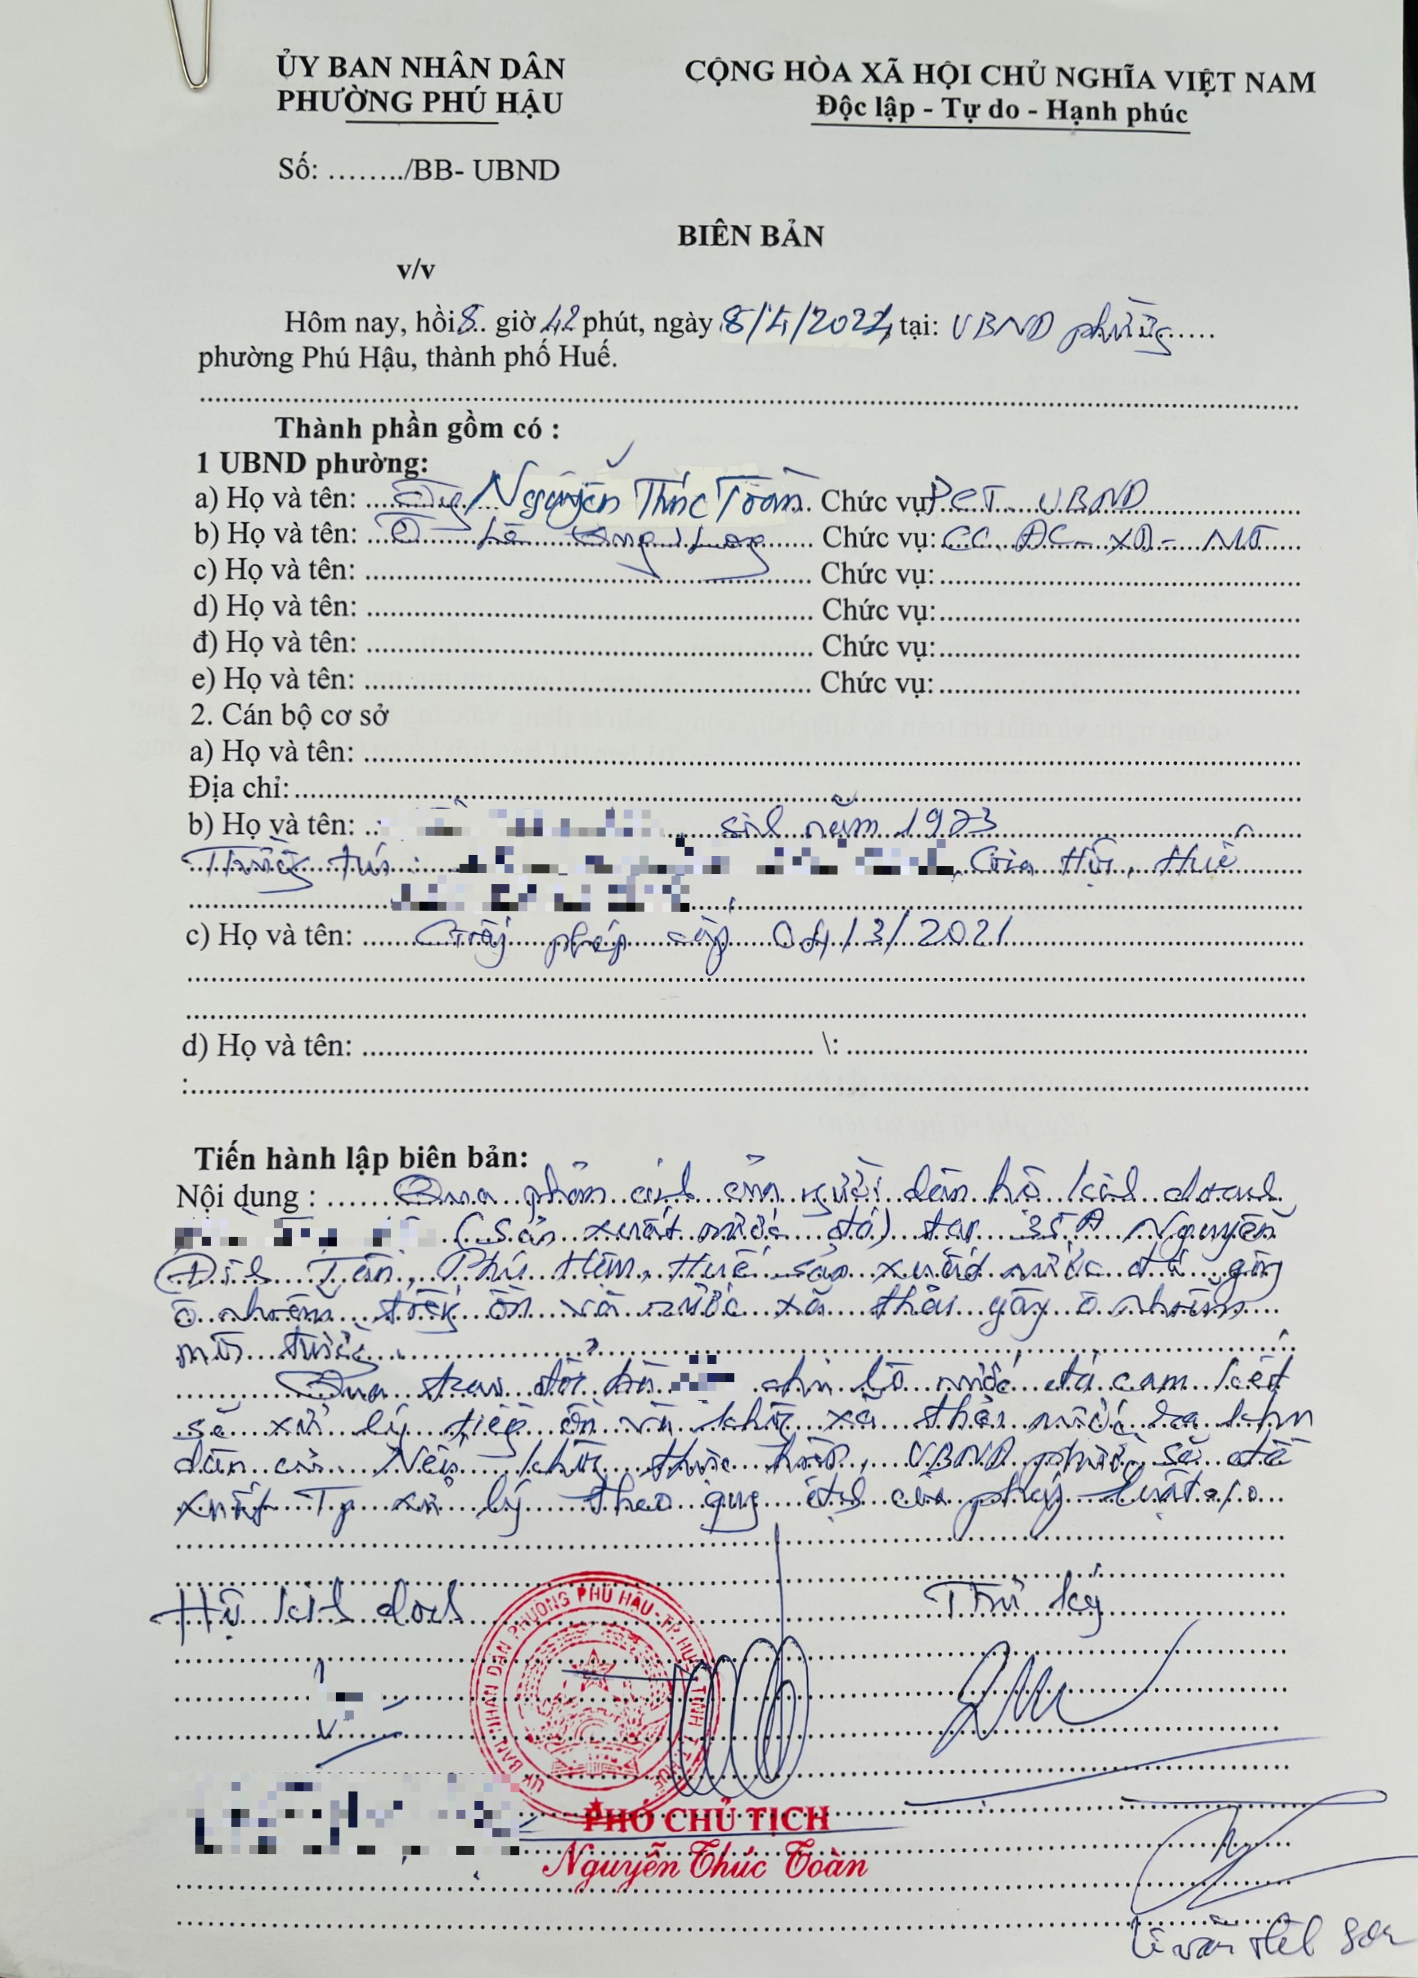 ỦY BAN NHÂN DÂN
PHƯỜNG PHÚ HẬU
CỘNG HÒA XÃ HỘI CHỦ NGHĨA VIỆT NAM
Độc lập - Tự do - Hạnh phúc
Số: ......../BB- UBND
BIÊN BẢN
v/v
Hôm nay, hồi 8 giờ 42 phút, ngày 8/4/2022, tại: UBND phường
phường Phú Hậu, thành phố Huế.
Thành phần gồm có :
1 UBND phường:
a) Họ và tên: Ông Nguyễn Thúc Toàn Chức vụ PCT UBND
b) Họ và tên: Lê Chức vụ: CC ĐC-XD-MT
c) Họ và tên: Chức vụ:
d) Họ và tên: Chức vụ:
đ) Họ và tên: Chức vụ:
e) Họ và tên: Chức vụ:
2. Cán bộ cơ sở
a) Họ và tên:
Địa chỉ:
b) Họ và tên: sinh năm 1973
Thường trú: Gia Hội, Huế
c) Họ và tên: Giấy phép cấp 04/3/2021
d) Họ và tên: \:
:
Tiến hành lập biên bản:
Nội dung : Qua phản ánh của người dân hộ kinh doanh
(sản xuất nước đá) tại 35A Nguyễn
Đình Tân, Phú Hậu, Huế sản xuất nước đá gây
ô nhiễm tiếng ồn và nước xả thải gây ô nhiễm
môi trường.
Qua trao đổi bà chủ lò nước đá cam kết
sẽ xử lý tiếng ồn và không xả thải nước ra khu
dân cư. Nếu không thực hiện, UBND phường sẽ đề
xuất Tp xử lý theo quy định của pháp luật./.
Hộ kinh doanh
Thư ký
ỦY BAN NHÂN DÂN PHƯỜNG PHÚ HẬU - TP. HUẾ TỈNH T.T. HUẾ
PHÓ CHỦ TỊCH
Nguyễn Thúc Toàn